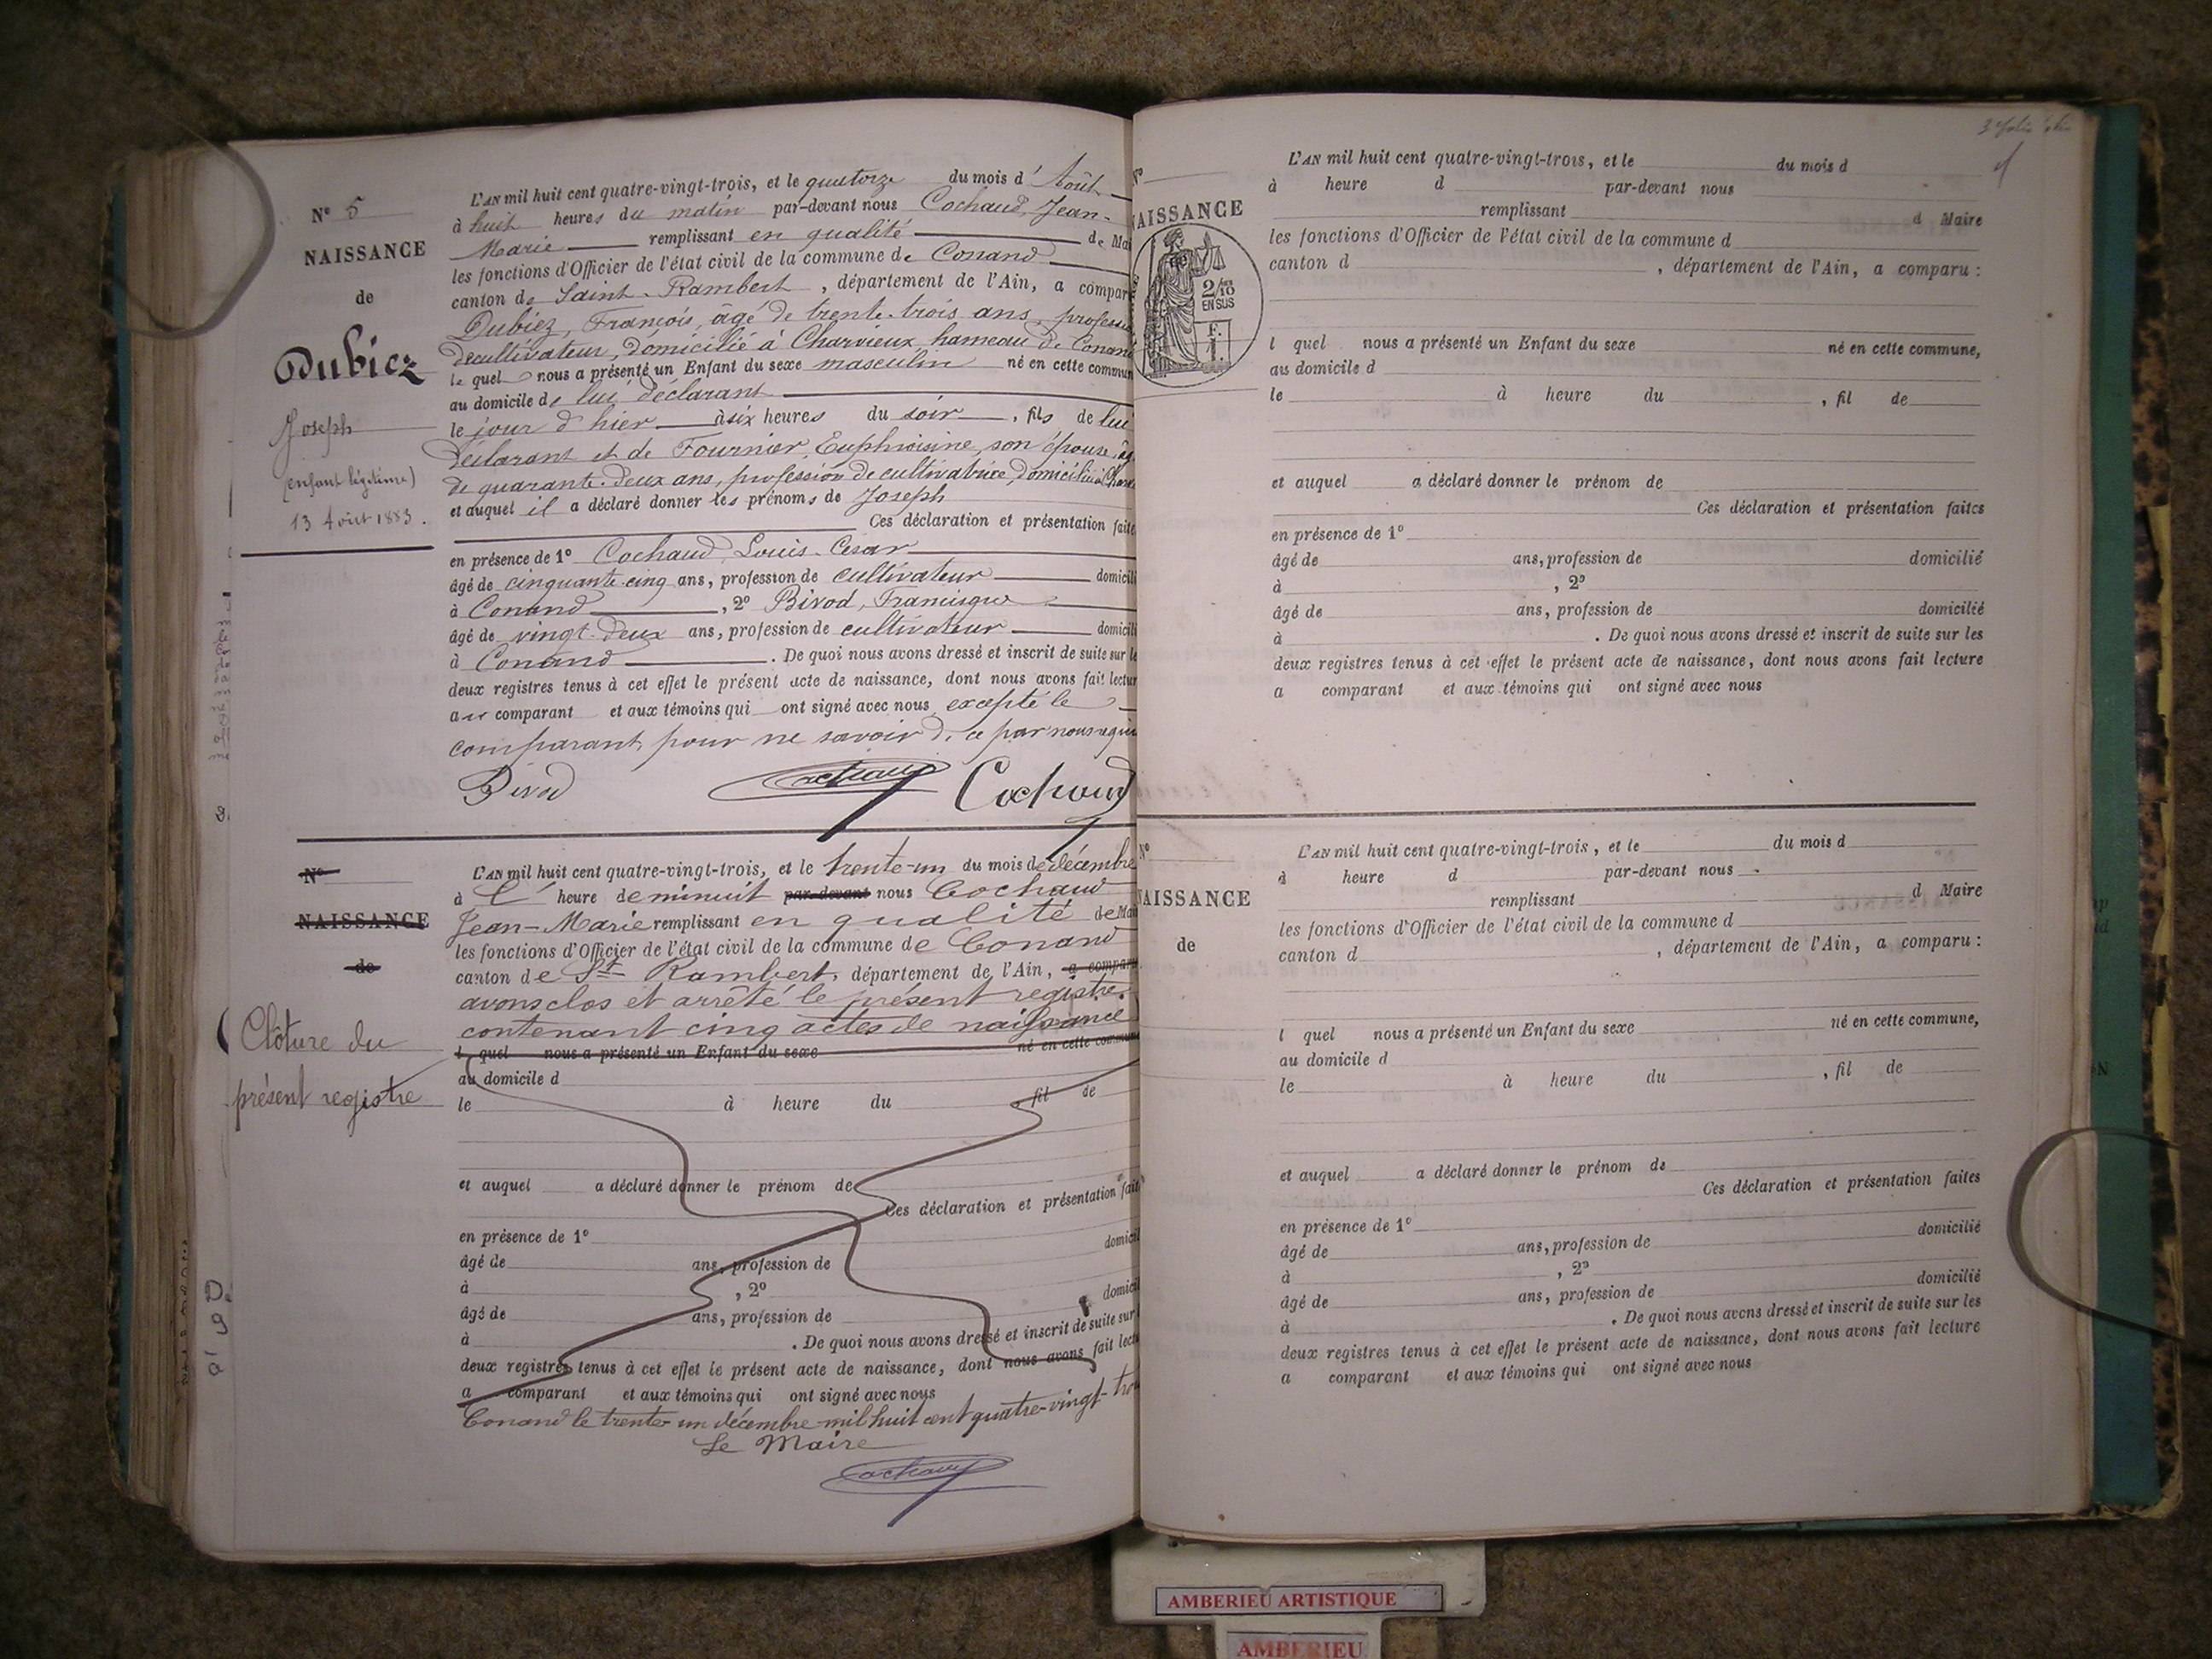 N° 5
NAISSANCE
de
Dubiez
Joseph
(enfant légitime)
13 Août 1883.
L'AN mil huit cent quatre-vingt-trois, et le quatorze du mois d' Août
à huit heures du matin par-devant nous Cochaud, Jean-
Marie remplissant en qualité de Ma
les fonctions d'Officier de l'état civil de la commune de Conand
canton de Saint-Rambert, département de l'Ain, a compar
Dubiez, François, âgé de trente-trois ans, profession
de cultivateur, domicilié à Charvieux hameau de Conand
le quel nous a présenté un Enfant du sexe masculin né en cette commun
au domicile de lui déclarant
le jour d'hier à six heures du soir, fils de lui
déclarant et de Fournier, Euphroisine, son épouse, âg
de quarante-deux ans, profession de cultivatrice, domiciliée à
et auquel il a déclaré donner les prénoms de Joseph
Ces déclaration et présentation faite
en présence de 1° Cochaud, Louis-César
âgé de cinquante-cinq ans, profession de cultivateur domicili
à Conand, 2° Bivod, Francisque
âgé de vingt-deux ans, profession de cultivateur domicili
à Conand. De quoi nous avons dressé et inscrit de suite sur le
deux registres tenus à cet effet le présent acte de naissance, dont nous avons fait lectur
au comparant et aux témoins qui ont signé avec nous excepté le
comparant, pour ne savoir, de ce par nous requis
Bivod Cochaud Cochaud
N°
NAISSANCE
de
Clôture du
présent registre
L'AN mil huit cent quatre-vingt-trois, et le trente-un du mois de décembre
à l' heure de minuit par-devant nous Cochaud
Jean-Marie remplissant en qualité de Mai
les fonctions d'Officier de l'état civil de la commune de Conand
canton de St Rambert, département de l'Ain, a comparu
avons clos et arrêté le présent registre
contenant cinq actes de naissance
l quel nous a présenté un Enfant du sexe né en cette commune
au domicile d
le à heure du , fil de
et auquel a déclaré donner le prénom de
Ces déclaration et présentation fait
en présence de 1°
domicil
âgé de ans, profession de
à , 2°
domicil
âgé de ans, profession de
à . De quoi nous avons dressé et inscrit de suite sur
deux registres tenus à cet effet le présent acte de naissance, dont nous avons fait lect
a comparant et aux témoins qui ont signé avec nous
Conand le trente-un décembre mil huit cent quatre-vingt-tro
Le Maire
Cochaud
NAISSANCE
de
2/10
EN SUS
L'AN mil huit cent quatre-vingt-trois, et le du mois d
à heure d par-devant nous
remplissant d Maire
les fonctions d'Officier de l'état civil de la commune d
canton d , département de l'Ain, a comparu :
l quel nous a présenté un Enfant du sexe né en cette commune,
au domicile d
le à heure du , fil de
et auquel a déclaré donner le prénom de
Ces déclaration et présentation faites
en présence de 1°
âgé de ans, profession de domicilié
à , 2°
âgé de ans, profession de domicilié
à . De quoi nous avons dressé et inscrit de suite sur les
deux registres tenus à cet effet le présent acte de naissance, dont nous avons fait lecture
a comparant et aux témoins qui ont signé avec nous
N°
NAISSANCE
de
L'AN mil huit cent quatre-vingt-trois, et le du mois d
à heure d par-devant nous
remplissant d Maire
les fonctions d'Officier de l'état civil de la commune d
canton d , département de l'Ain, a comparu :
l quel nous a présenté un Enfant du sexe né en cette commune,
au domicile d
le à heure du , fil de
et auquel a déclaré donner le prénom de
Ces déclaration et présentation faites
en présence de 1°
âgé de ans, profession de domicilié
à , 2°
âgé de ans, profession de domicilié
à . De quoi nous avons dressé et inscrit de suite sur les
deux registres tenus à cet effet le présent acte de naissance, dont nous avons fait lecture
a comparant et aux témoins qui ont signé avec nous
AMBERIEU ARTISTIQUE
AMBERIEU